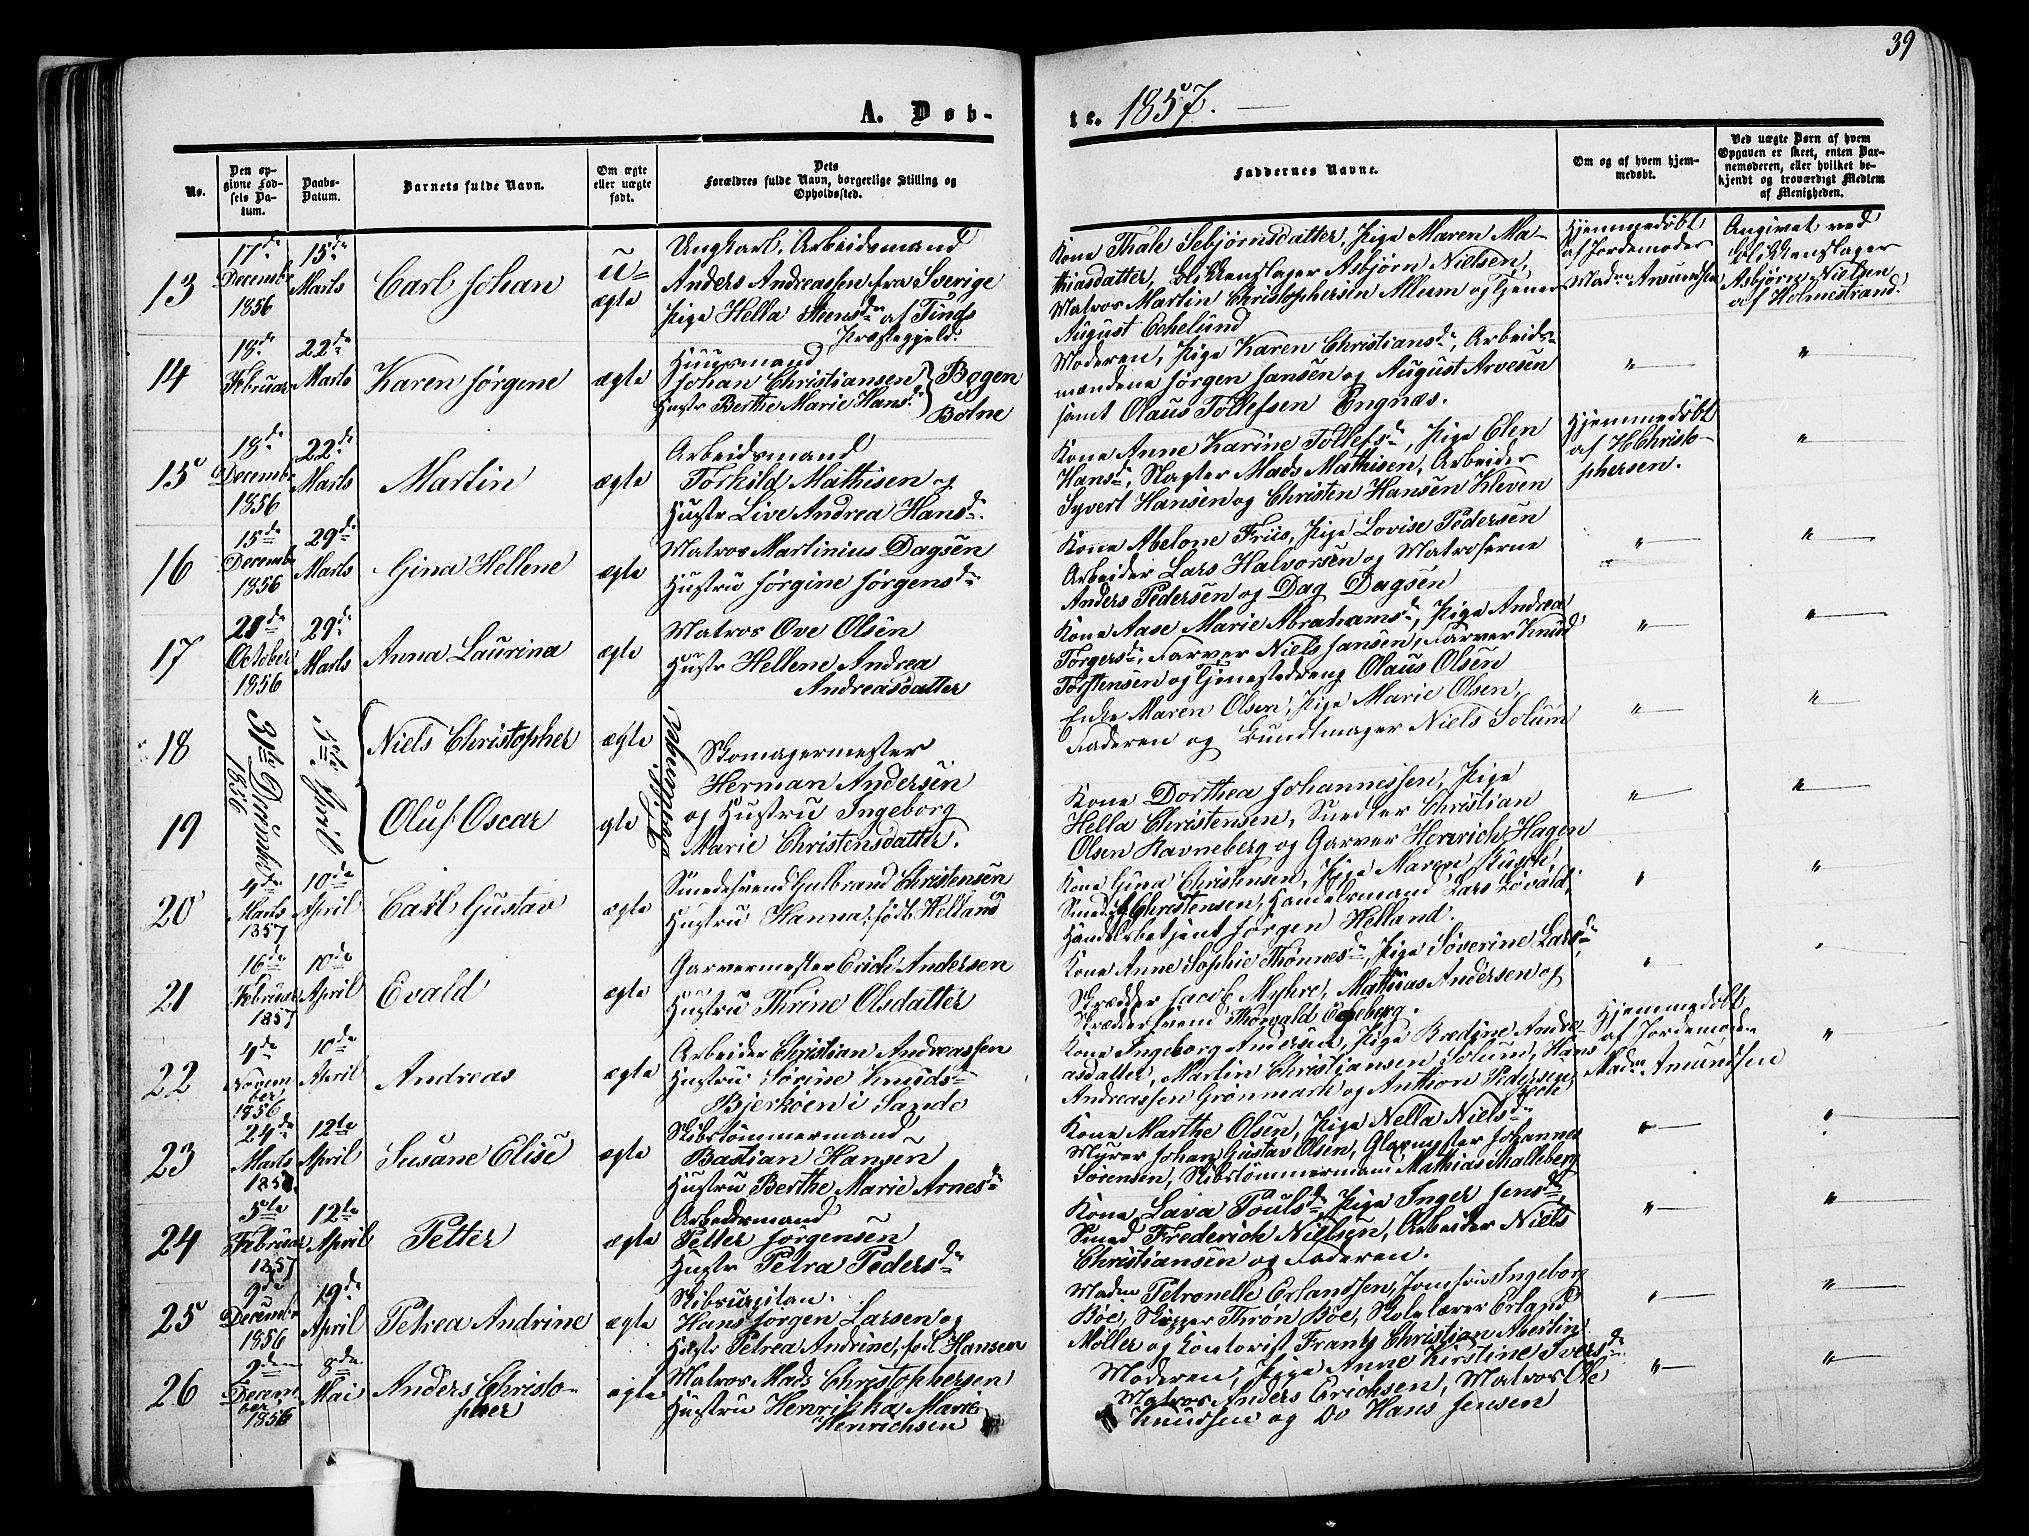 39
A. Døb-
te. 1857.
No.
Den op-
givne Fød-
sels Da-
tum.
Daabs-
Datum.
Barnets fulde Navn.
Om ægte
eller uægte
født.
Dets
Forældres fulde Navn, borgerlige Stilling og
Opholdssted.
Faddernes Navne.
Om og af hvem hjem-
medøbt.
Ved uægte Børn af hvem
Opgaven er skeet, enten Bar-
nemoderen, eller hvilket be-
kjendt og troværdigt Medlem
af Menigheden.
13
17de
December
1856
15de
Marts
Carl Johan
u-
ægte
Ungkarl, Arbeidsmand
Anders Andreassen fra Sverige
Pige Hella Steensdr af Tinds
Præstegjeld.
Kone Thale Sebjørnsdatter, Pige Maren Ma-
thiasdatter, Blikkenslager Asbjørn Nielsen,
Matros Martin Christophersen Allum og Tjener
August Echelund
Hjemmedöbt
af Jordemoder
Madm Amundsen
Angivet ved
Blikkenslager
Asbjørn Nielsen
af Holmestrand.
14
18de
Februar
22de
Marts
Karen Jørgene
ægte
Huusmand
Johan Christiansen
Hustr Berthe Marie Hansdr
Bogen
Botne
Moderen, Pige Karen Christiansdr, Arbeids-
mændene Jørgen Jansen og August Arvesen
samt Olaus Tollefsen Engnæs.
"
"
15
18de
December
1856
22de
Marts
Martin
ægte
Arbeidsmand
Torkild Mathisen og
Hustr Live Andrea Hansdr.
Kone Anne Karine Tollefsdr, Pige Elen
Hansdr, Slagter Mads Mathisen, Arbeider
Syvert Hansen og Christen Hansen Kleven
Hjemmedöbt
af H Christo-
phersen.
"
16
15de
Decembr
1856
29de
Marts
Gina Hellene
ægte
Matros Martinius Dagsen
Hustru Jørgine Jørgensdr
Kone Abelone Friis, Pige Lovise Pedersen
Arbeider Lars Halvorsen og Matroserne
Anders Pedersen og Dag Dagsen
"
"
17
21de
October
1856
29de
Marts
Anna Laurina
ægte
Matros Ove Olsen
Hustr Hellene Andrea
Andreasdatter
Kone Aase Marie Abrahamsdr, Pige Andrea
Torgersdr, Farver Niels Jansen, Farver Knud
Torstensen og Tjenestedreng Olaus Olsen
"
"
18
31te December
1856
5te April
Niels Christopher
ægte
Skomagermester
Herman Andersen
og Hustru Ingeborg
Marie Christensdatter.
Enke Maren Olsen, Pige Marie Olsen,
Faderen og Bundtmager Niels Solum
"
"
19
Oluf Oscar
ægte
Kone Dorthea Johannessen, Pige
Hella Christensen, Snedker Christian
Olsen Ravneberg og Garver Henrich Hagen
"
"
20
4de
Marts
1857
10de
April
Carl Gustav
ægte
Smedesvend Gulbrand Christensen
Hustru Hanna, født Helland
Kone Gina Christensen, Pige Maren Rusch,
Smed Christensen, Handelsmand Lars Lövald,
Handelsbetjent Jørgen Helland.
"
"
21
16de
Februar
1857
10de
April
Evald
ægte
Garvermester Erich Andersen
Hustru Thrine Olsdatter
Kone Anne Sophie Thønnesdr, Pige Søverine Larsdr,
Skrædder Jacob Myhre, Mathias Andersen og
Skræddersvend Thorvald Egeberg.
"
"
22
4de
Novem
ber
1856
10de
April
Andreas
ægte
Arbeider Christian Andreassen
Hustru Sørine Knuds-
Bjerköen i Sande
Kone Ingeborg Andersen, Pige Bredine Andre-
asdatter, Martin Christiansen Solum, Hans
Andreassen Grønmark og Anthon Pedersen
Hjemmedöbt
af Jordemoder
Madm Amundsen
"
23
24de
Marts
1857
12te
April
Susane Elise
ægte
Skibstömmermand
Bastian Hansen
Hustru Berthe Marie Arnesdr
Kone Marthe Olsen, Pige Nella Nielsdr
Myrer Johan Gustav Olsen, Glarmester Johannes
Sørensen, Skibstömmermand Mathias Malleberg
"
"
24
5te
Februar
1857
12te
April
Petter
ægte
Arbeidsmand
Petter Jørgensen
Hustr Petra Pedersdr
Kone Lava Poulsdr, Pige Inger Jensdr,
Smed Frederich Nielsen, Arbeider Niels
Christiansen og Faderen.
"
"
25
9de
Decembr
1856
19de
April
Petrea Andrine
ægte
Hans Jørgen Larsen og
Hustr Petrea Andrine, født Hansen
Madm Petronelle Erlandsen, Jomfru Ingeborg
Böe, Skipper Thrön Böe, Skolelærer Erland
Møller og Kontorist Frantz Christian Abesting
"
"
26
2den
Decem
ber
1856
8de
Mai
Anders Christo-
pher
ægte
Matros Mads Christophersen
Hustru Henrikka Marie
Henrichsen
Moderen, Pige Anne Kirstine Iversdr
Matros Anders Erichsen, Matros Ole
Knudsen og Do Hans Jensen
"
"